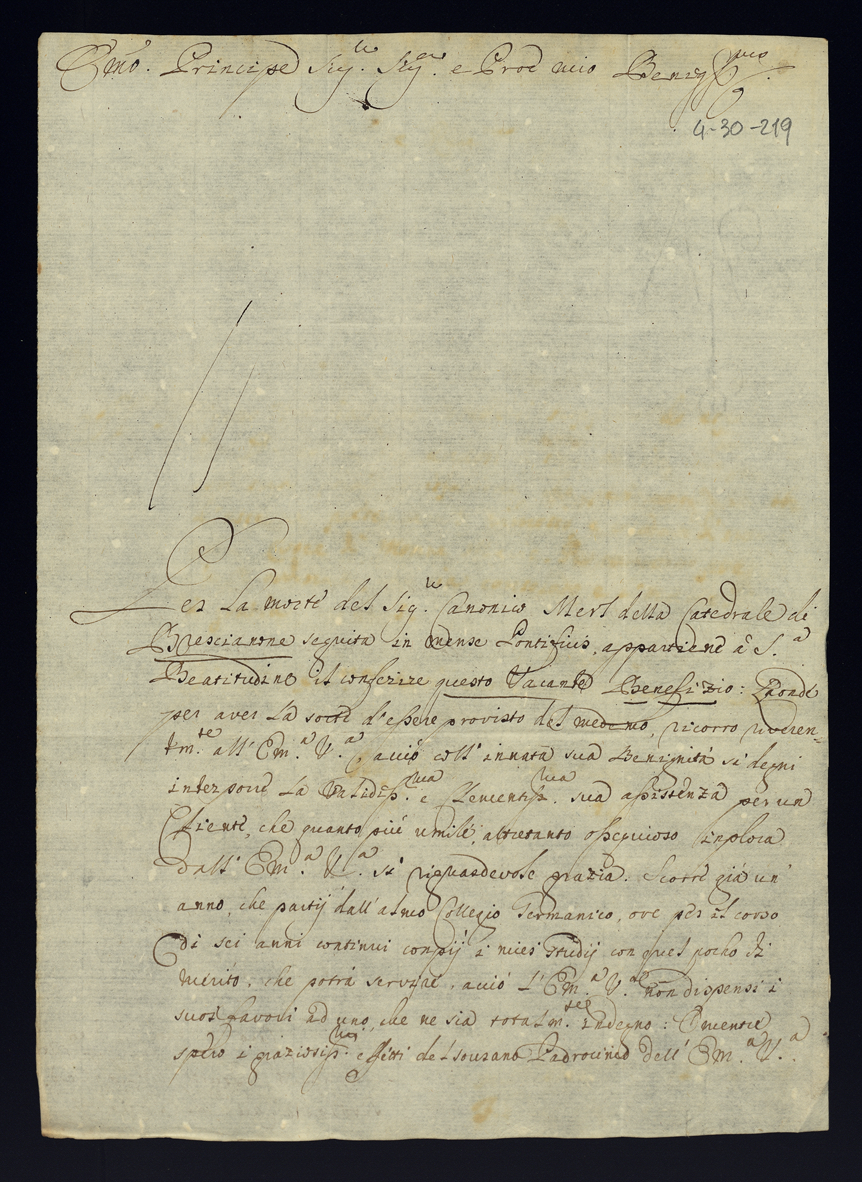 Emo. Principe Sig.re Sig.re e Prone mio Benig.mo
4-30-219
Per La morte del Sig.re Canonico Merl della Catedrale di
Brescianone seguita in mense Pontificio, appartiene á S.a
Beatitudine il conferire questo Vacante Benefizio: Laonde
per aver La sorte d'essere provisto del medemo, ricorro riveren=
tem.te all' Em.a V.a, acció coll' innata sua Benignitá si degni
interpore La validiss.ma e Clementiss.ma sua assistenza per un
Cliente, che quanto piú umile, altretanto ossequioso inplora
dall' Em.a V.a sí riguardevole grazia. Scorre giá un'
anno, che partij dall' almo Collegio Germanico, ove per il corso
di sei anni continui conpij i miei Studij con quel pocho di
merito, che potrá servire, acció L'Em.a V.a non dispensi i
suoi favori ad uno, che ne sia totalm.te indegno: Ementre
spero i graziosiss.mi effetti del sourano Padrocinio dell' Em.a V.a